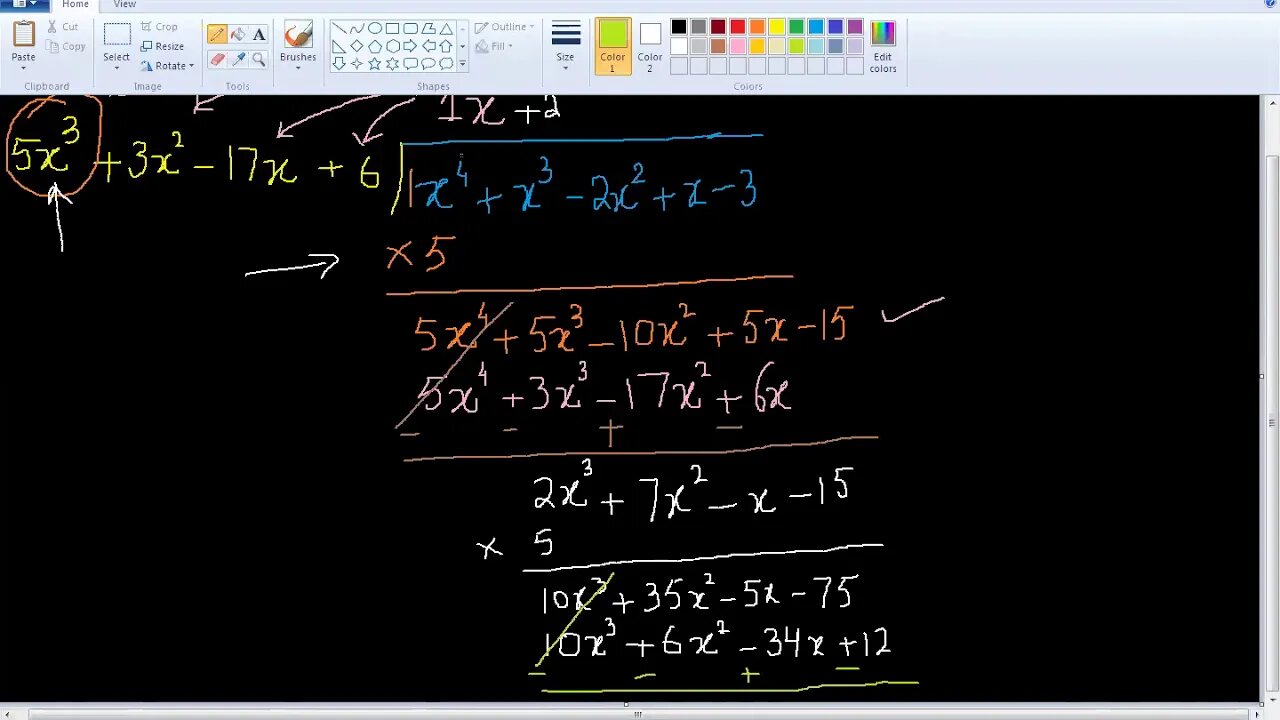 Home View
Paste Cut Copy Clipboard
Select Crop Resize Rotate Image
A Tools
Brushes
Shapes
Outline Fill
Size
Color 1 Color 2 Edit colors Colors
1x + 2
5x³ + 3x² - 17x + 6 1x⁴ + x³ - 2x² + x - 3
× 5
5x⁴ + 5x³ - 10x² + 5x - 15
5x⁴ + 3x³ - 17x² + 6x
- - + -
2x³ + 7x² - x - 15
× 5
10x³ + 35x² - 5x - 75
10x³ + 6x² - 34x + 12
- - + -